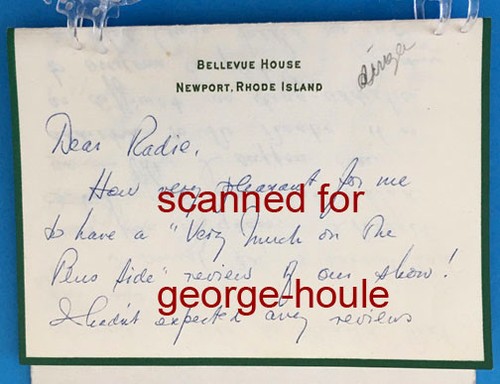 BELLEVUE HOUSE
NEWPORT, RHODE ISLAND
Dear Radie,
How very pleasant for me
scanned for
to have a "Very Much on The
Plus Side" review of our show!
george-houle
I hadn't expected any reviews